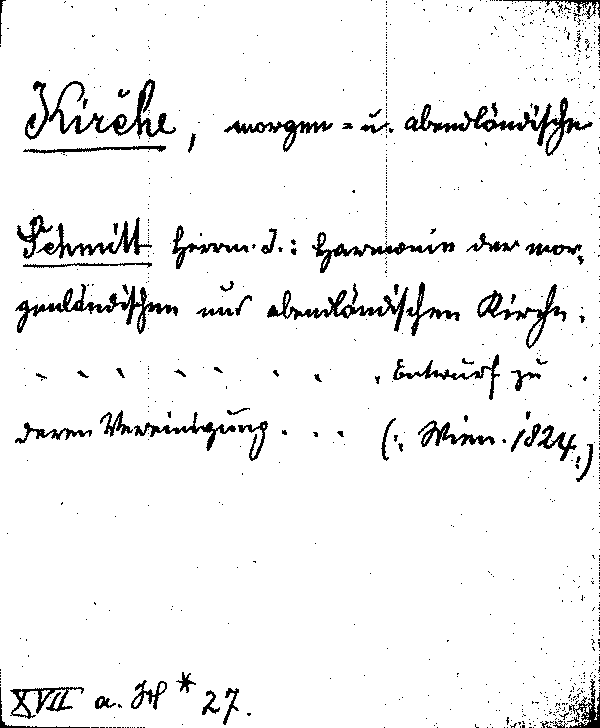 Kirche, morgen- u. abendländische
Schmitt Herm. J.: Harmonie der mor-
genländischen und abendländischen Kirche.
. . . . . . . . Entwurf zu
deren Vereinigung . . . (: Wien. 1824.:)
XVII a. * 27.